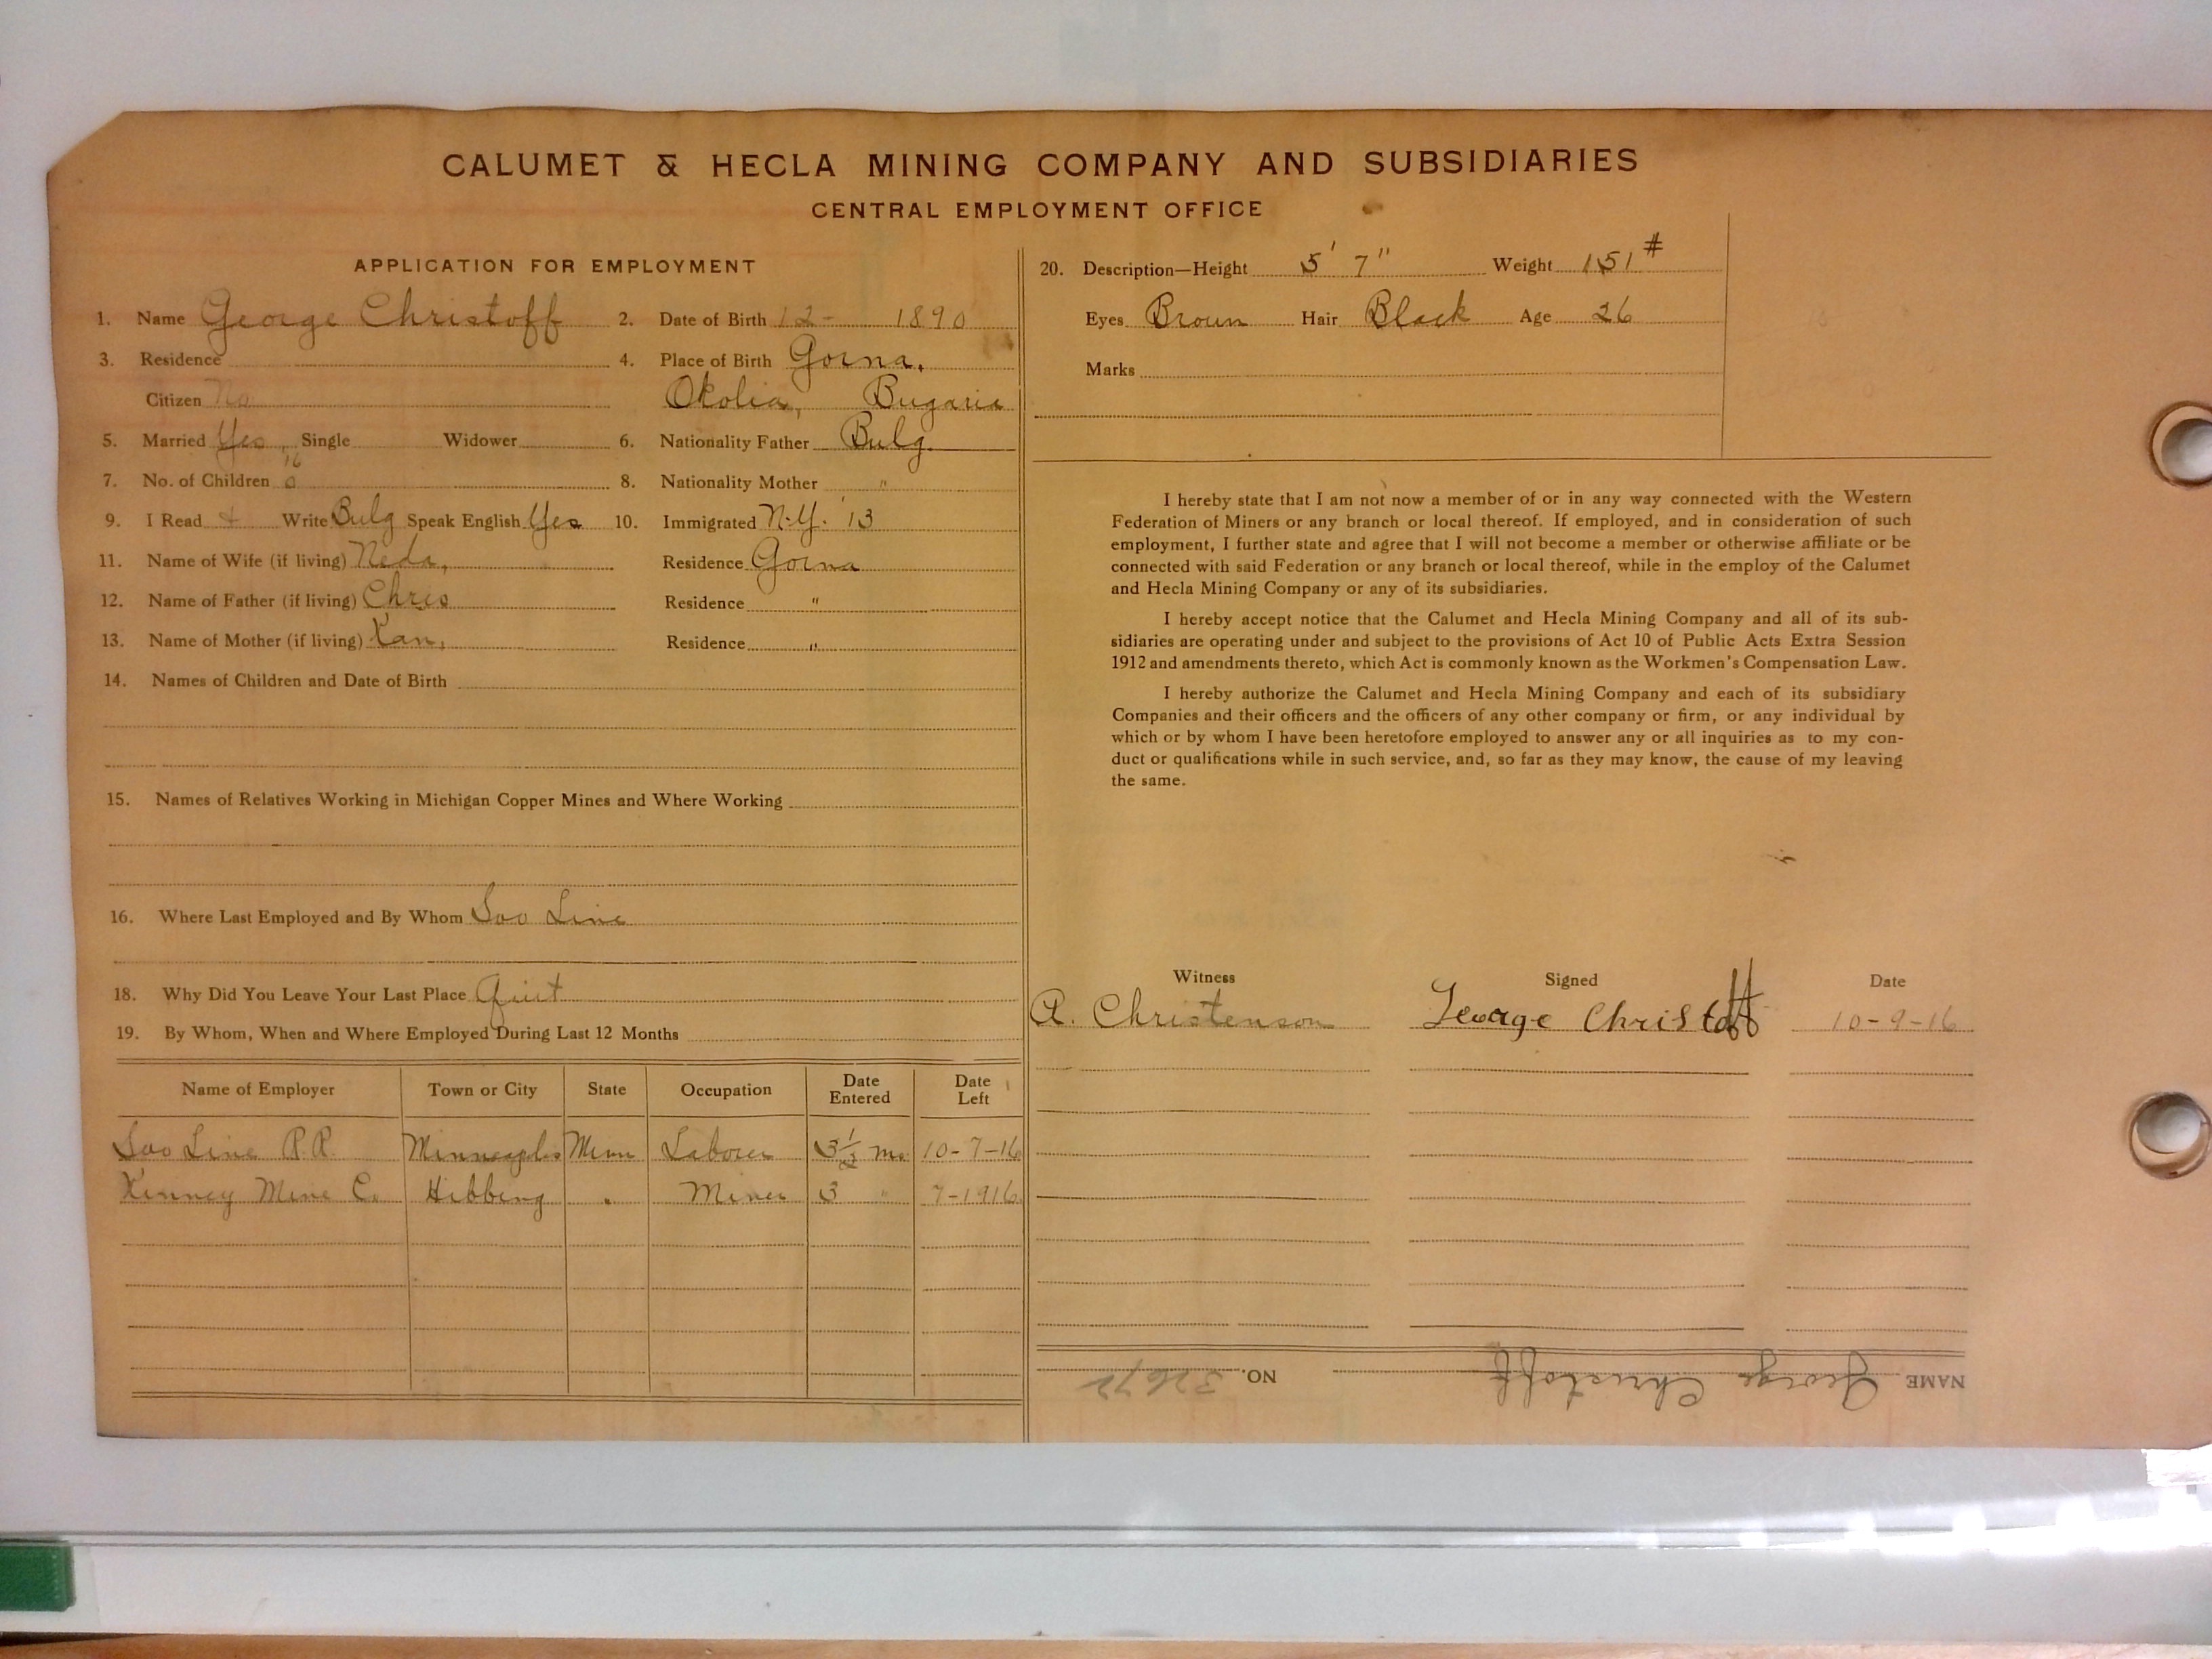 CALUMET & HECLA MINING COMPANY AND SUBSIDIARIES
CENTRAL EMPLOYMENT OFFICE
APPLICATION FOR EMPLOYMENT
1. Name George Christoff 2. Date of Birth 12- 1890
3. Residence 4. Place of Birth Gorna,
Citizen No Okolia, Bugaria
5. Married Yes, Single Widower 6. Nationality Father Bulg.
7. No. of Children 0 8. Nationality Mother "
9. I Read + Write Bulg Speak English Yes 10. Immigrated N.Y. '13
11. Name of Wife (if living) Neda, Residence Gorna
12. Name of Father (if living) Chris Residence "
13. Name of Mother (if living) Kan, Residence "
14. Names of Children and Date of Birth
15. Names of Relatives Working in Michigan Copper Mines and Where Working
16. Where Last Employed and By Whom Soo Line
18. Why Did You Leave Your Last Place Quit
19. By Whom, When and Where Employed During Last 12 Months
Name of Employer Town or City State Occupation Date Entered Date Left
Soo Line R.R. Minneaplis Minn Laborer 3 1/2 Mo 10-7-16
Kinney Mine C. Hibbing " Miner 3 " 7-1916
20. Description—Height 5' 7" Weight 151#
Eyes Brown Hair Black Age 26
Marks
I hereby state that I am not now a member of or in any way connected with the Western
Federation of Miners or any branch or local thereof. If employed, and in consideration of such
employment, I further state and agree that I will not become a member or otherwise affiliate or be
connected with said Federation or any branch or local thereof, while in the employ of the Calumet
and Hecla Mining Company or any of its subsidiaries.
I hereby accept notice that the Calumet and Hecla Mining Company and all of its sub-
sidiaries are operating under and subject to the provisions of Act 10 of Public Acts Extra Session
1912 and amendments thereto, which Act is commonly known as the Workmen's Compensation Law.
I hereby authorize the Calumet and Hecla Mining Company and each of its subsidiary
Companies and their officers and the officers of any other company or firm, or any individual by
which or by whom I have been heretofore employed to answer any or all inquiries as to my con-
duct or qualifications while in such service, and, so far as they may know, the cause of my leaving
the same.
Witness Signed Date
A. Christenson George Christoff 10-9-16
NAME George Christoff NO. 32672